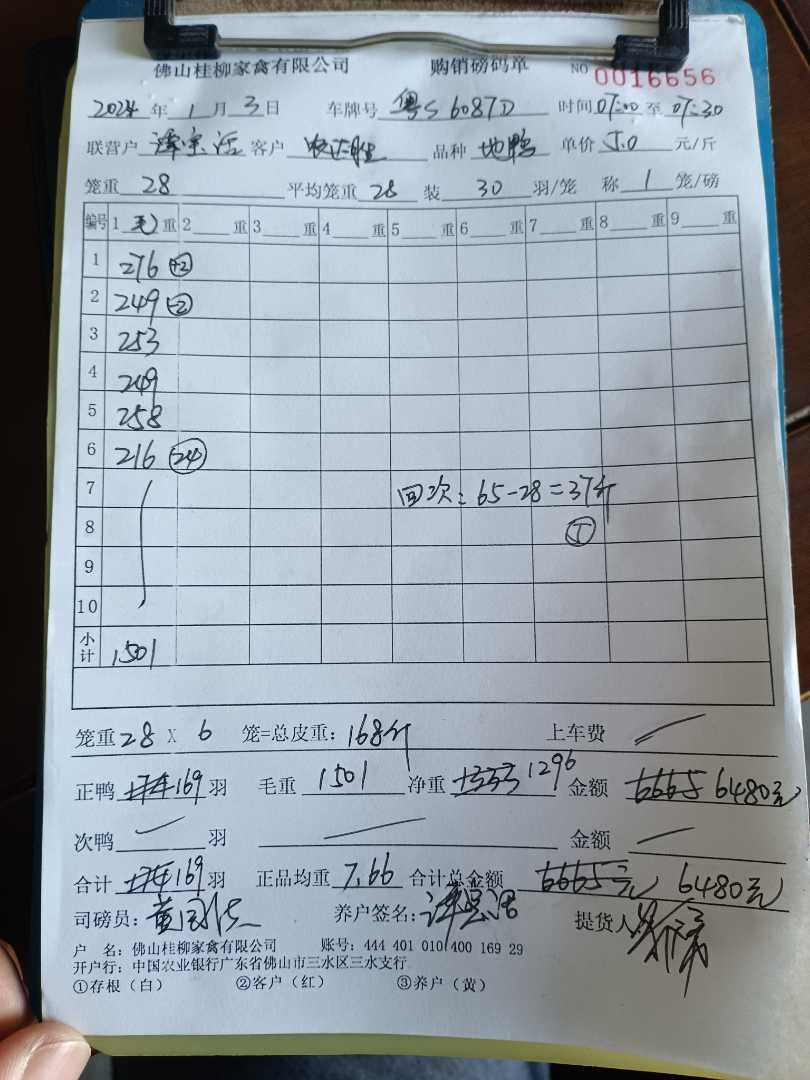 佛山桂柳家禽有限公司 购销磅码单 NO 0016656
2024年1月3日 车牌号 粤S6087D 时间07:00至07:30
联营户 客户 品种 地鸭 单价 5.0 元/斤
笼重 28 平均笼重 28 装 30 羽/笼 称 1 笼/磅
编号 1 毛 重 2 重 3 重 4 重 5 重 6 重 7 重 8 重 9 重
1 276 +2
2 249 -2
3 253
4 249
5 258
6 216 24
7 回次:65-28=37斤
8 5
9
10
小计 1501
笼重28×6 笼=总皮重:168斤 上车费
正鸭 169 羽 毛重 1501 净重 1333 1296 金额 6665 6480元
次鸭 羽 金额
合计 169 羽 正品均重 7.66 合计总金额 6665元 6480元
司磅员: 养户签名: 提货人
户 名:佛山桂柳家禽有限公司 账号:444 401 010 400 169 29
开户行:中国农业银行广东省佛山市三水区三水支行
①存根(白) ②客户(红) ③养户(黄)